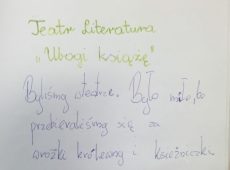 Teatr Literatura
"Ubogi książę"
Byliśmy w teatrze. Było miło, bo
przebieraliśmy się za
wróżki królewny i księżniczki